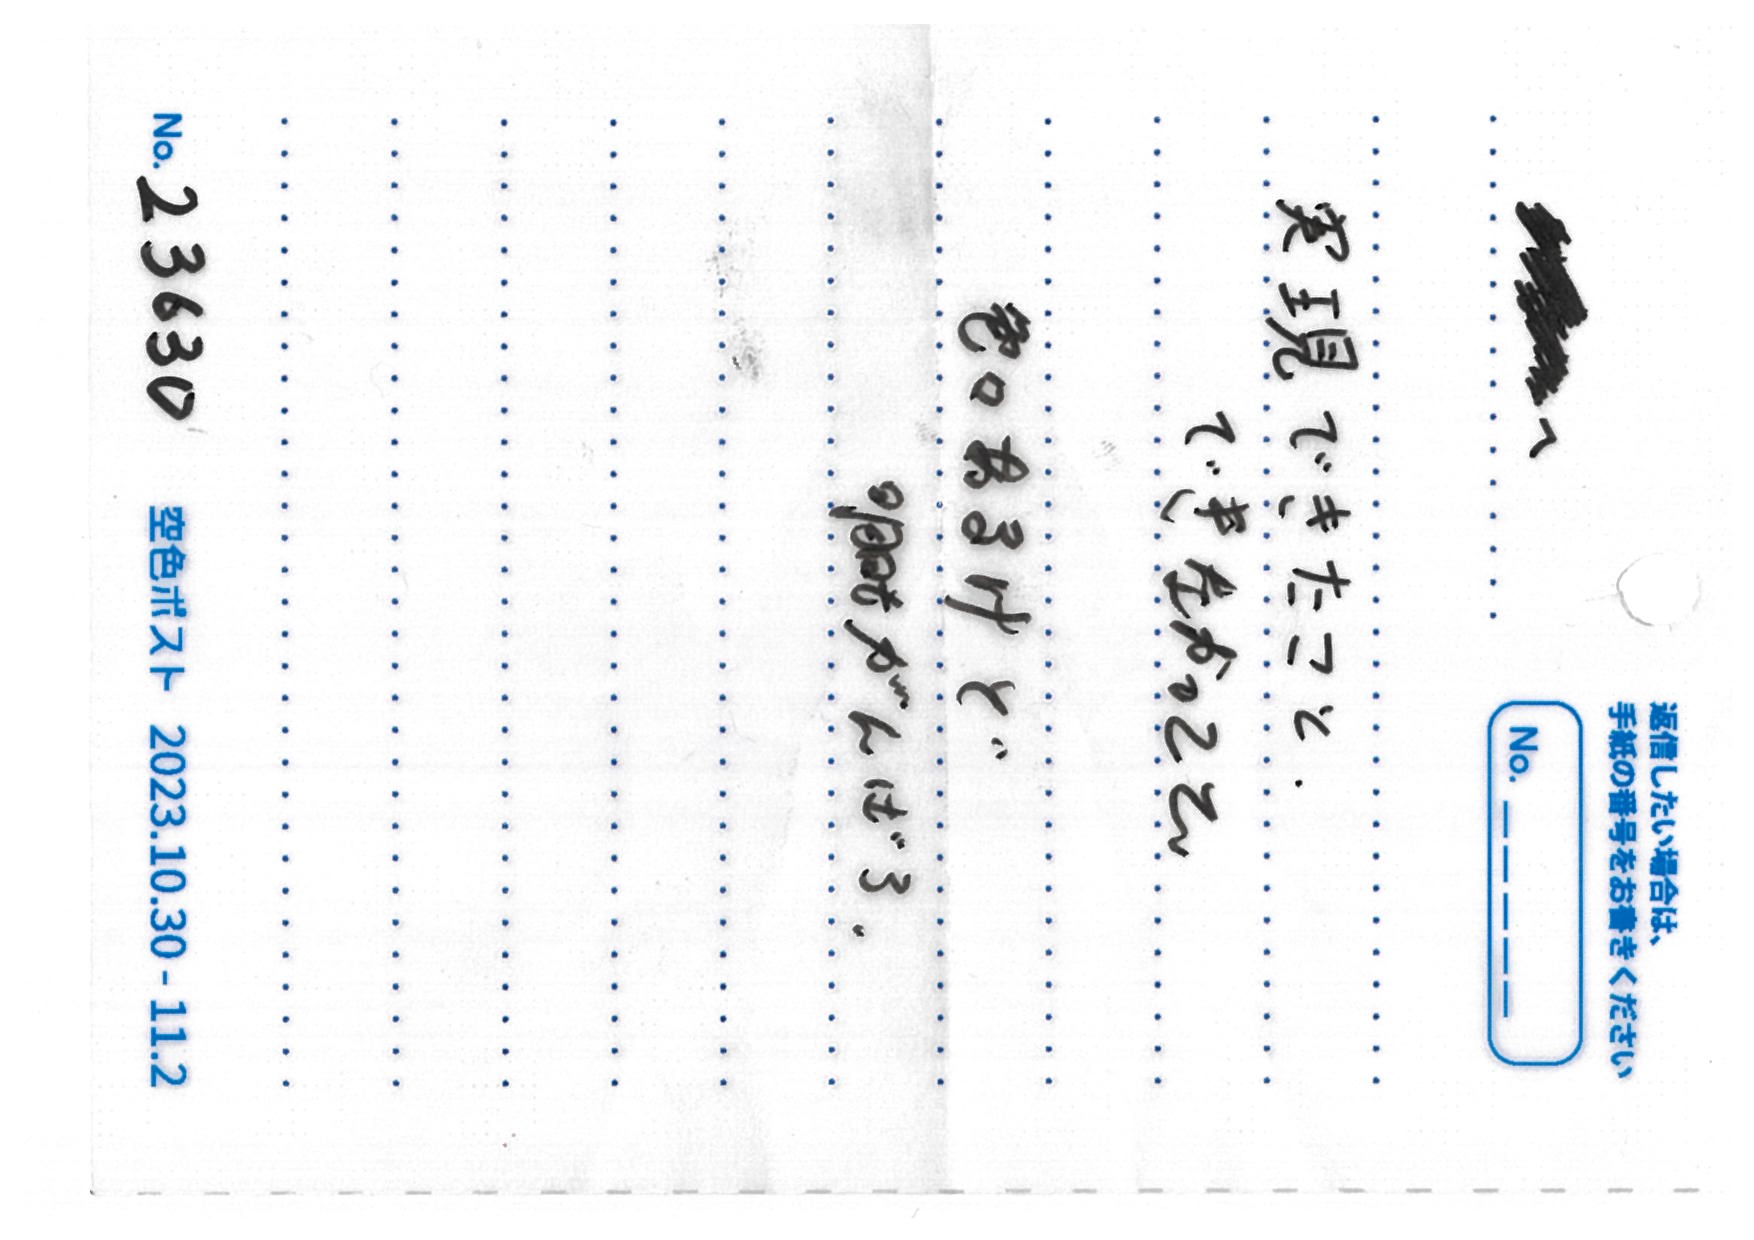 返信したい場合は、
手紙の番号をお書きください
No. _ _ _ _ _
へ
実現できたこと.
できなかってこと、
色々あるけど
明日もがんばろ.
No. 23630
空色ポスト 2023.10.30 - 11.2